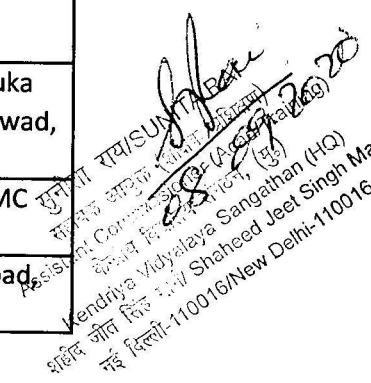 uka
wad,
MC
oad,
सुनीता राय/SUNITA RAI
सहायक आयुक्त
Assistant Commissioner (Acad/Training)
केन्द्रीय विद्यालय संगठन, (मु)
Kendriya Vidyalaya Sangathan (HQ)
शहीद जीत सिंह मार्ग/ Shaheed Jeet Singh Ma
नई दिल्ली-110016/New Delhi-110016